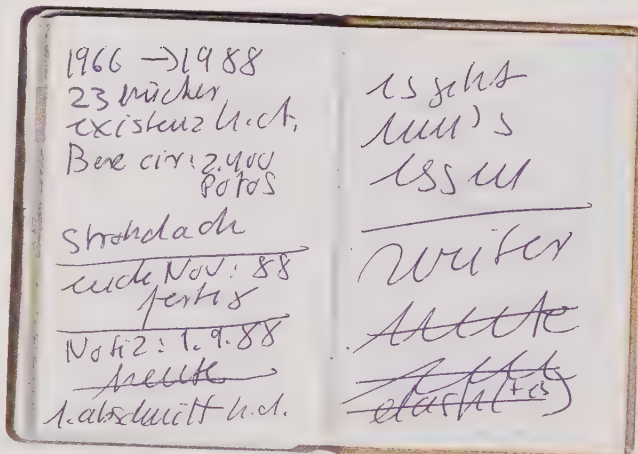 1966 → 1988
23 Bücher
existenz h.ct.
Bere cir: 2.400
Potos
Strohdach
ende Nov: 88
fertig
Notiz: 1.9.88
heute
1. abschnitt h.d.
es geht
um's
essen
weiter
heute